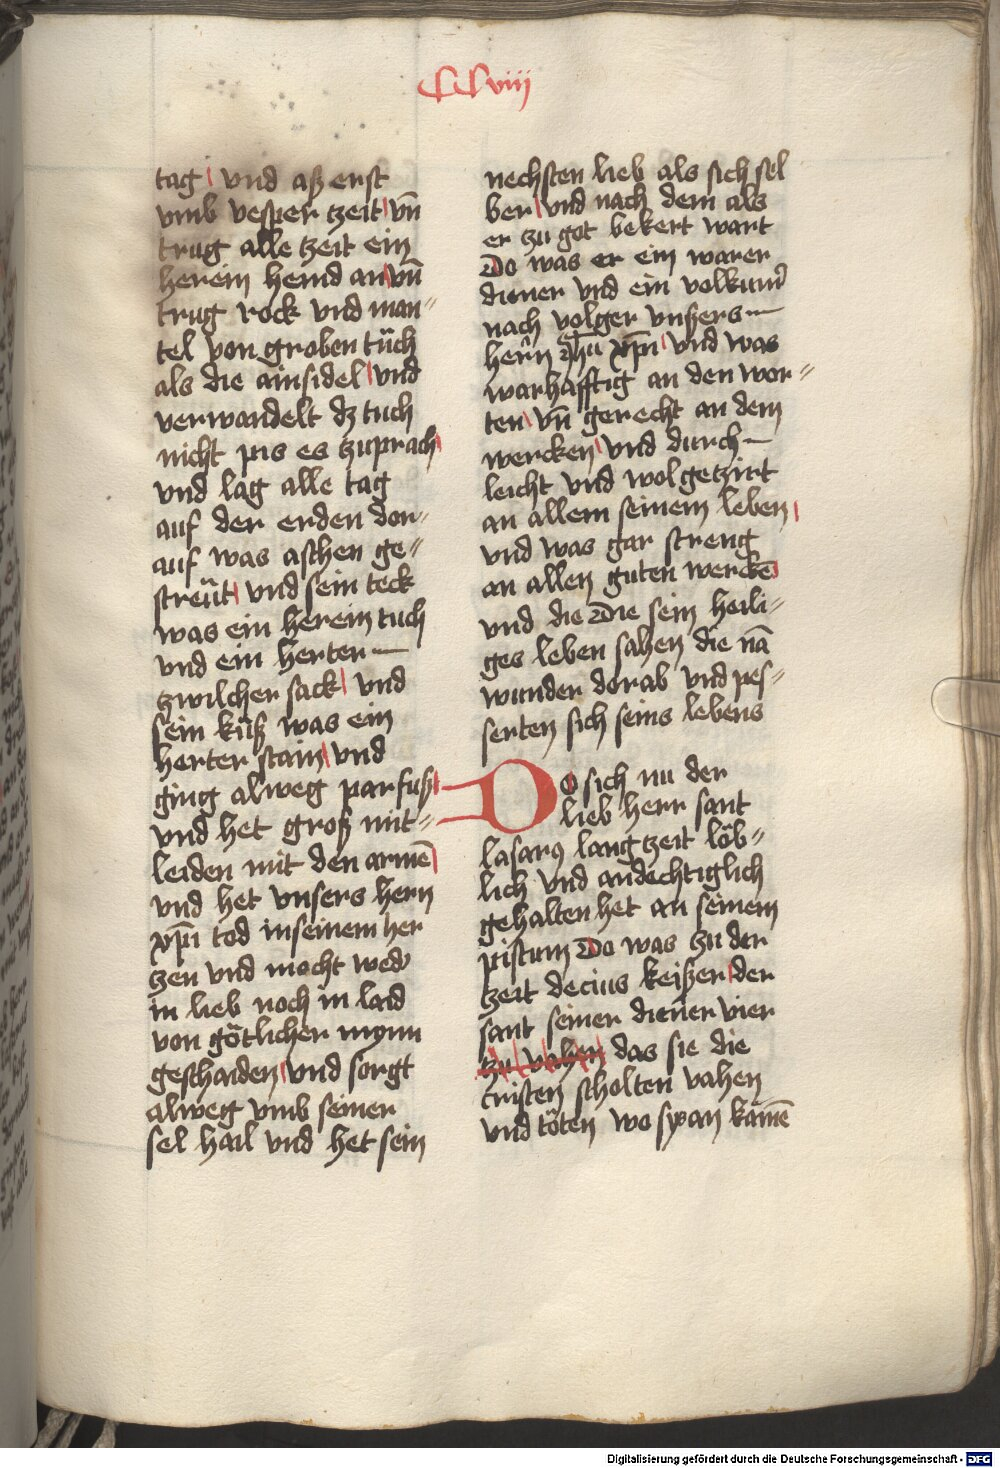 CClviii
tag vnd aß erst
vmb vesper tzeit vn̄
trug alle tzeit ein
herein hemd an vn̄
trug rock vnd man⸗
tel von groben tüch
als die ainsidel vnd
verwandelt dz tuch
nicht pis es zuprach
vnd lag alle tag
auf der erden dor⸗
auf was aschen ge⸗
streüt vnd sein teck
was ein herein tuch
vnd ein herter —
tzwilcher sack vnd
sein küß was ein
herter stain vnd
ging alweg parfuß
vnd het groß mit⸗
leiden mit den armē
vnd het vnsers hern
xp̄i tod in seinem her
zen vnd mocht wed'
in lieb noch in laid
von götlicher mynn
geschaiden vnd sorgt
alweg vmb seiner
sel hail vnd het sein
nechsten lieb als sich sel
ber vnd nach dem als
er zu got bekert wart
Do was er ein warer
diener vnd ein volkum̄
nach volger vnsers —
hern̄ Jhū xp̄i vnd was
warhafftig an den wor⸗
ten vn̄ gerecht an dem
wercken vnd durch —
leicht vnd wol getzirt
an allem seinem leben
vnd was gar streng
an allen guten werckē
vnd die Die sein heili⸗
ges leben sahen die nā
wunder dorab vnd pes⸗
serten sich seins lebens
Do sich nu der
lieb herr sant
lasarꝰ lang tzeit löb⸗
lich vnd andechtiglich
gehalten het an seinem
pistum Do was zu der
tzeit decius keißer der
sant seiner diener vier
zu vahen das sie die
cristen scholten vahen
vnd töten wo sy an kamē
Digitalisierung gefördert durch die Deutsche Forschungsgemeinschaft - DFG